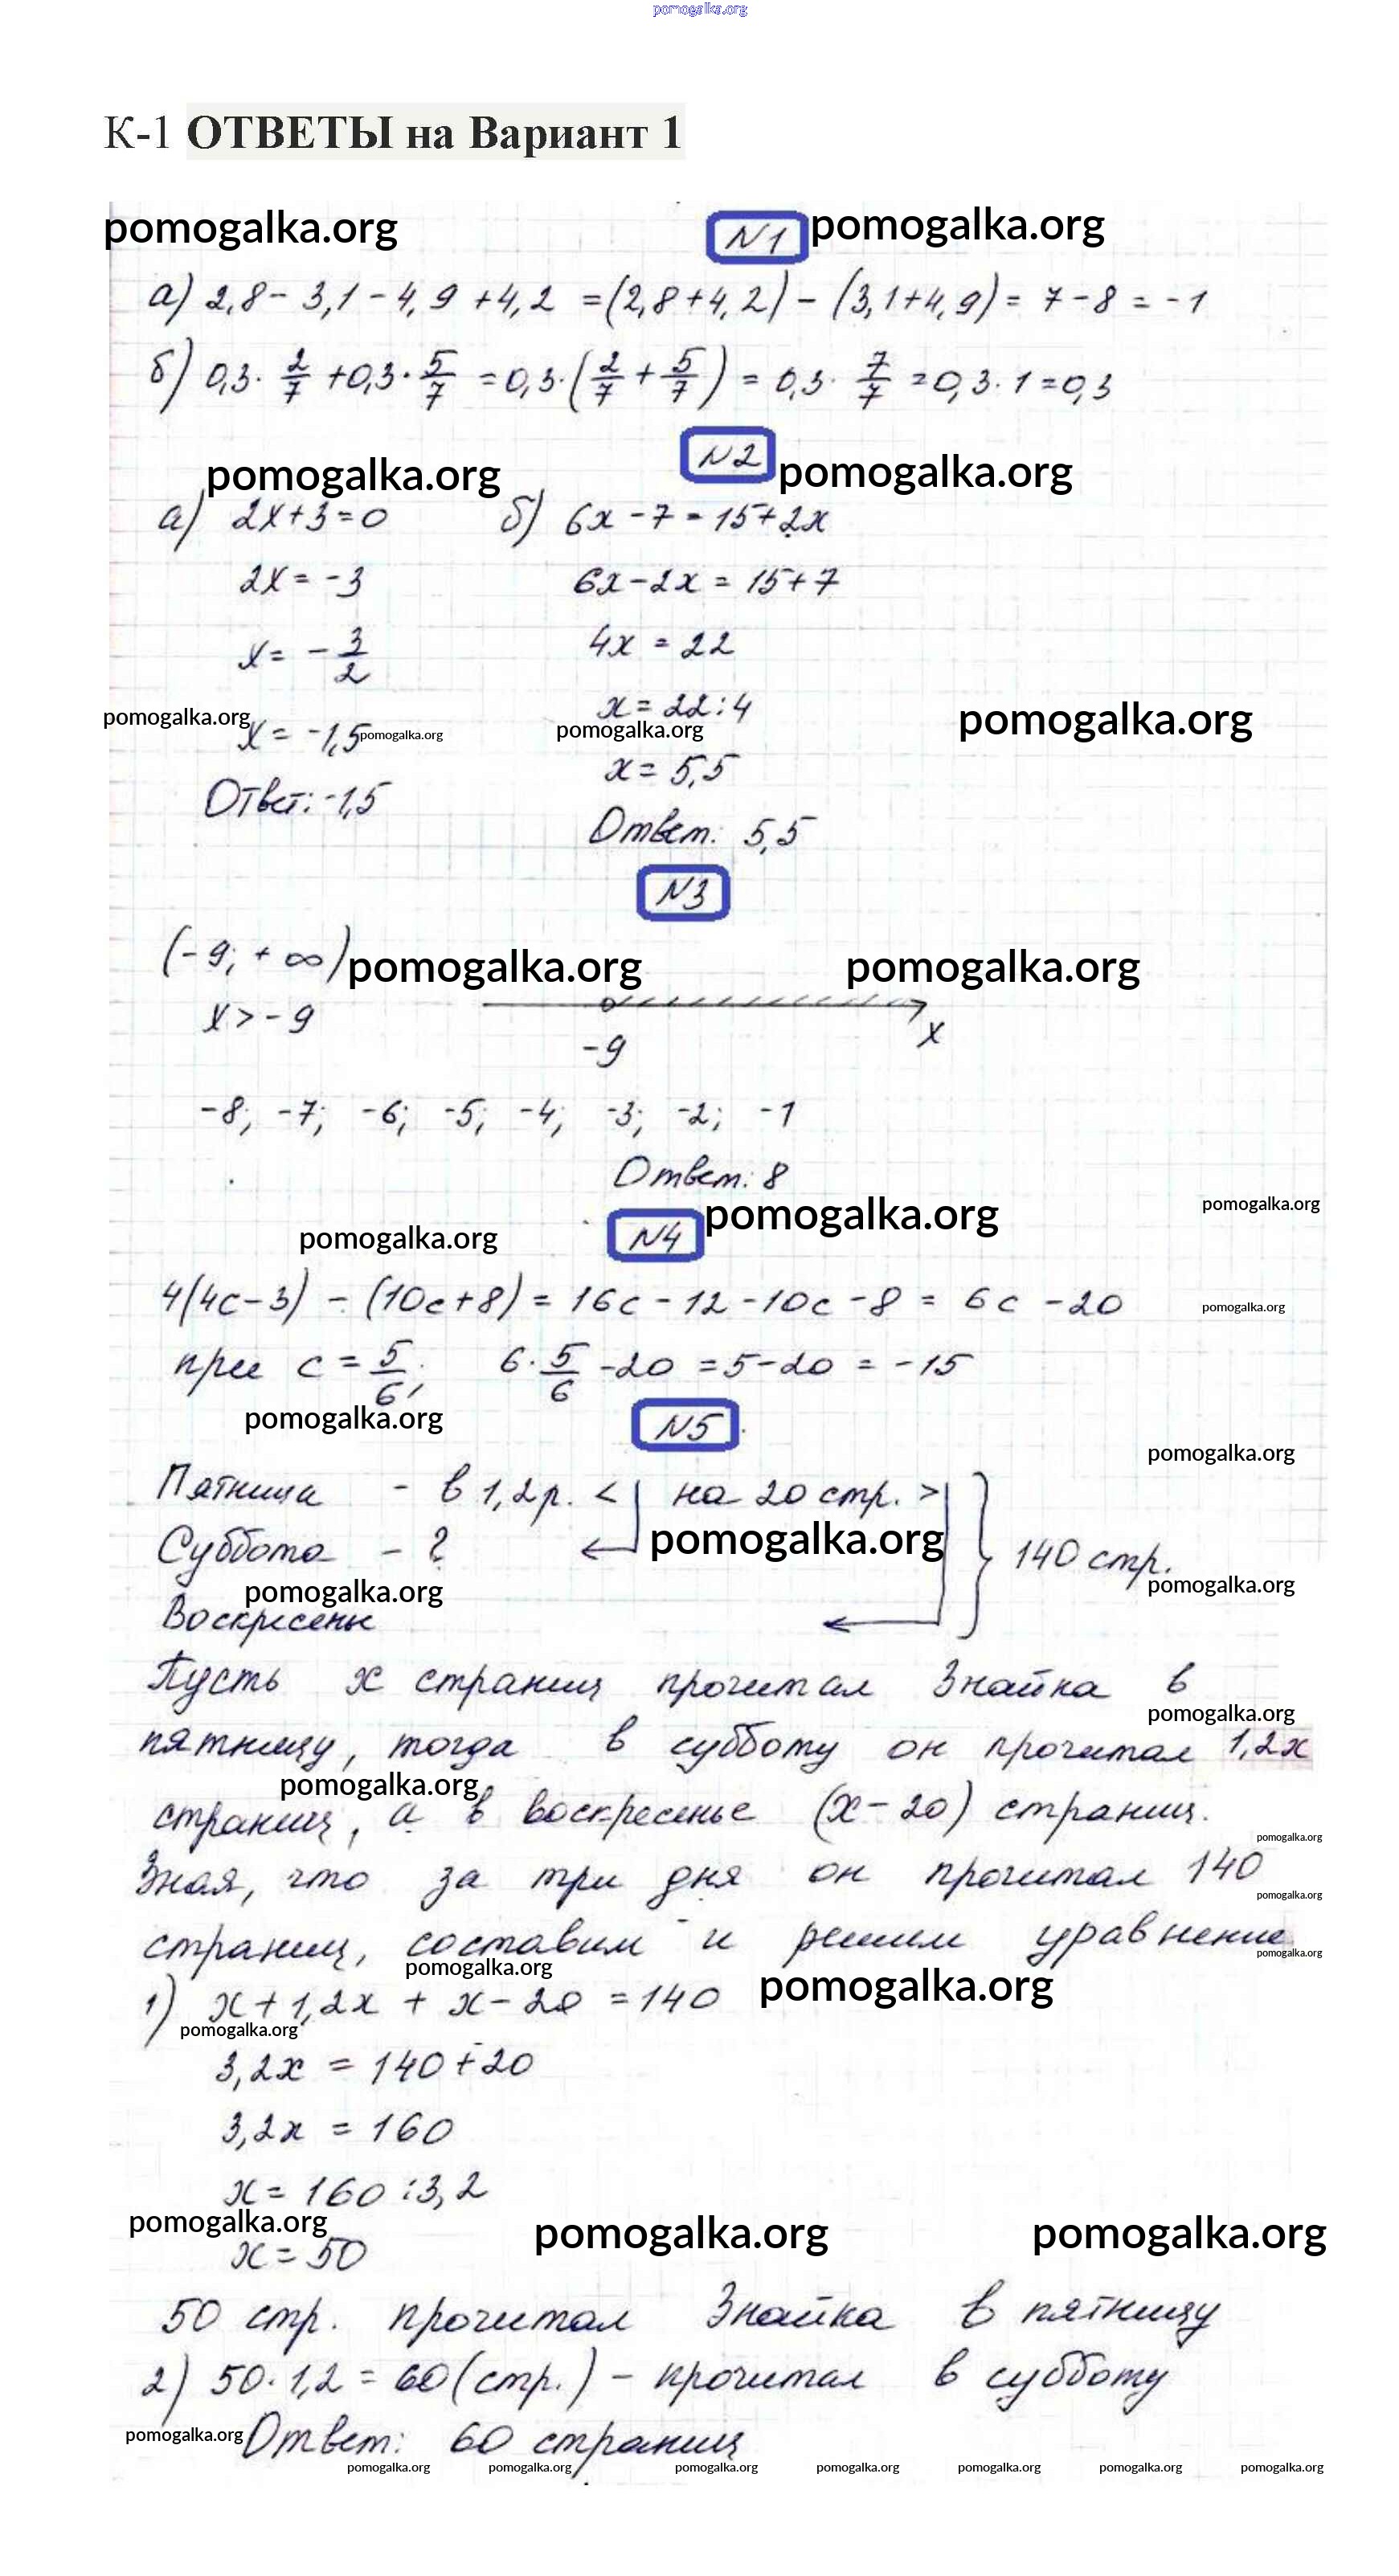 pomogalka.org
К-1 ОТВЕТЫ на Вариант 1
pomogalka.org N1 pomogalka.org
а) 2,8 - 3,1 - 4,9 + 4,2 = (2,8 + 4,2) - (3,1 + 4,9) = 7 - 8 = -1
б) 0,3 · 2/7 + 0,3 · 5/7 = 0,3 · (2/7 + 5/7) = 0,3 · 7/7 = 0,3 · 1 = 0,3
pomogalka.org N2 pomogalka.org
а) 2x + 3 = 0 б) 6x - 7 = 15 + 2x
2x = -3 6x - 2x = 15 + 7
x = - 3/2 4x = 22
x = 22 : 4
pomogalka.org x = -1,5 pomogalka.org pomogalka.org pomogalka.org
x = 5,5
Ответ: -1,5
Ответ: 5,5
N3
(-9; +∞) pomogalka.org pomogalka.org
x > -9
-9 x
-8; -7; -6; -5; -4; -3; -2; -1
Ответ: 8
pomogalka.org N4 pomogalka.org pomogalka.org
4(4c - 3) - (10c + 8) = 16c - 12 - 10c - 8 = 6c - 20 pomogalka.org
при c = 5/6; 6 · 5/6 - 20 = 5 - 20 = -15
pomogalka.org N5 pomogalka.org
Пятница - в 1,2 р. < на 20 стр. >
Суббота - ? pomogalka.org 140 стр.
pomogalka.org pomogalka.org
Воскресенье
Пусть x страниц прочитал Знайка в
pomogalka.org
пятницу, тогда в субботу он прочитал 1,2x
pomogalka.org
страниц, а в воскресенье (x - 20) страниц.
pomogalka.org
Зная, что за три дня он прочитал 140
pomogalka.org
страниц, составим и решим уравнение
pomogalka.org pomogalka.org pomogalka.org
1) x + 1,2x + x - 20 = 140
pomogalka.org
3,2x = 140 + 20
3,2x = 160
x = 160 : 3,2
pomogalka.org pomogalka.org pomogalka.org
x = 50
50 стр. прочитал Знайка в пятницу
2) 50 · 1,2 = 60 (стр.) - прочитал в субботу
pomogalka.org Ответ: 60 страниц
pomogalka.org pomogalka.org pomogalka.org pomogalka.org pomogalka.org pomogalka.org pomogalka.org